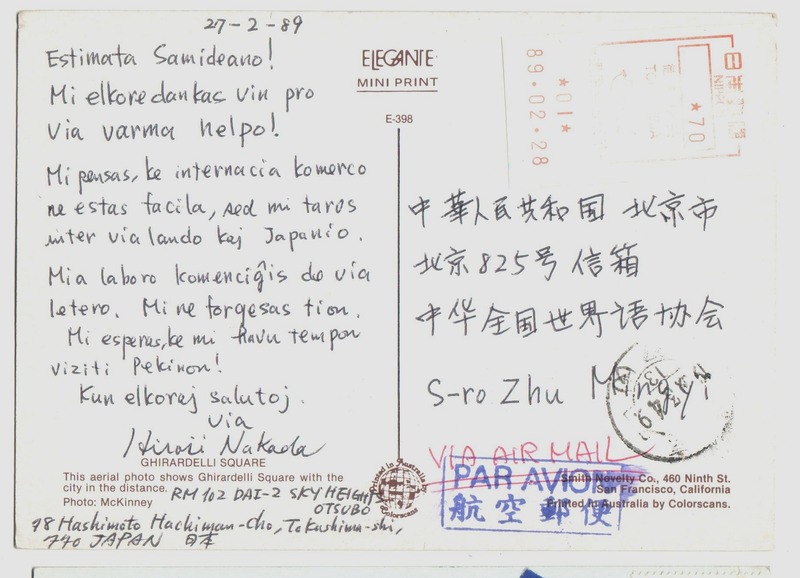 27-2-89
Estimata Samideano!
Mi elkore dankas vin pro
via varma helpo!
Mi pensas, ke internacia komerco
ne estas facila, sed mi faros
inter via lando kaj Japanio.
Mia laboro komenciĝis de via
letero. Mi ne forgesas tion.
Mi esperas, ke mi havu tempon
viziti Pekinon!
Kun elkoraj salutoj.
via
Hirosi Nakada
GHIRARDELLI SQUARE
This aerial photo shows Ghirardelli Square with the
city in the distance.
Photo: McKinney
RM 102 DAI-2 SKY HEIGHTS
OTSUBO
48 Hashimoto Hachiman-Cho, Tokushima-shi,
770 JAPAN 日本
ELEGANTE
MINI PRINT
E-398
Printed in Australia by
Colorscans
89.02.28
*01*
*70
中華人民共和国 北京市
北京825号信箱
中华全国世界语协会
S-ro Zhu
VIA AIR MAIL
PAR AVION
航空郵便
Smith Novelty Co., 460 Ninth St.
San Francisco, California
Printed in Australia by Colorscans.